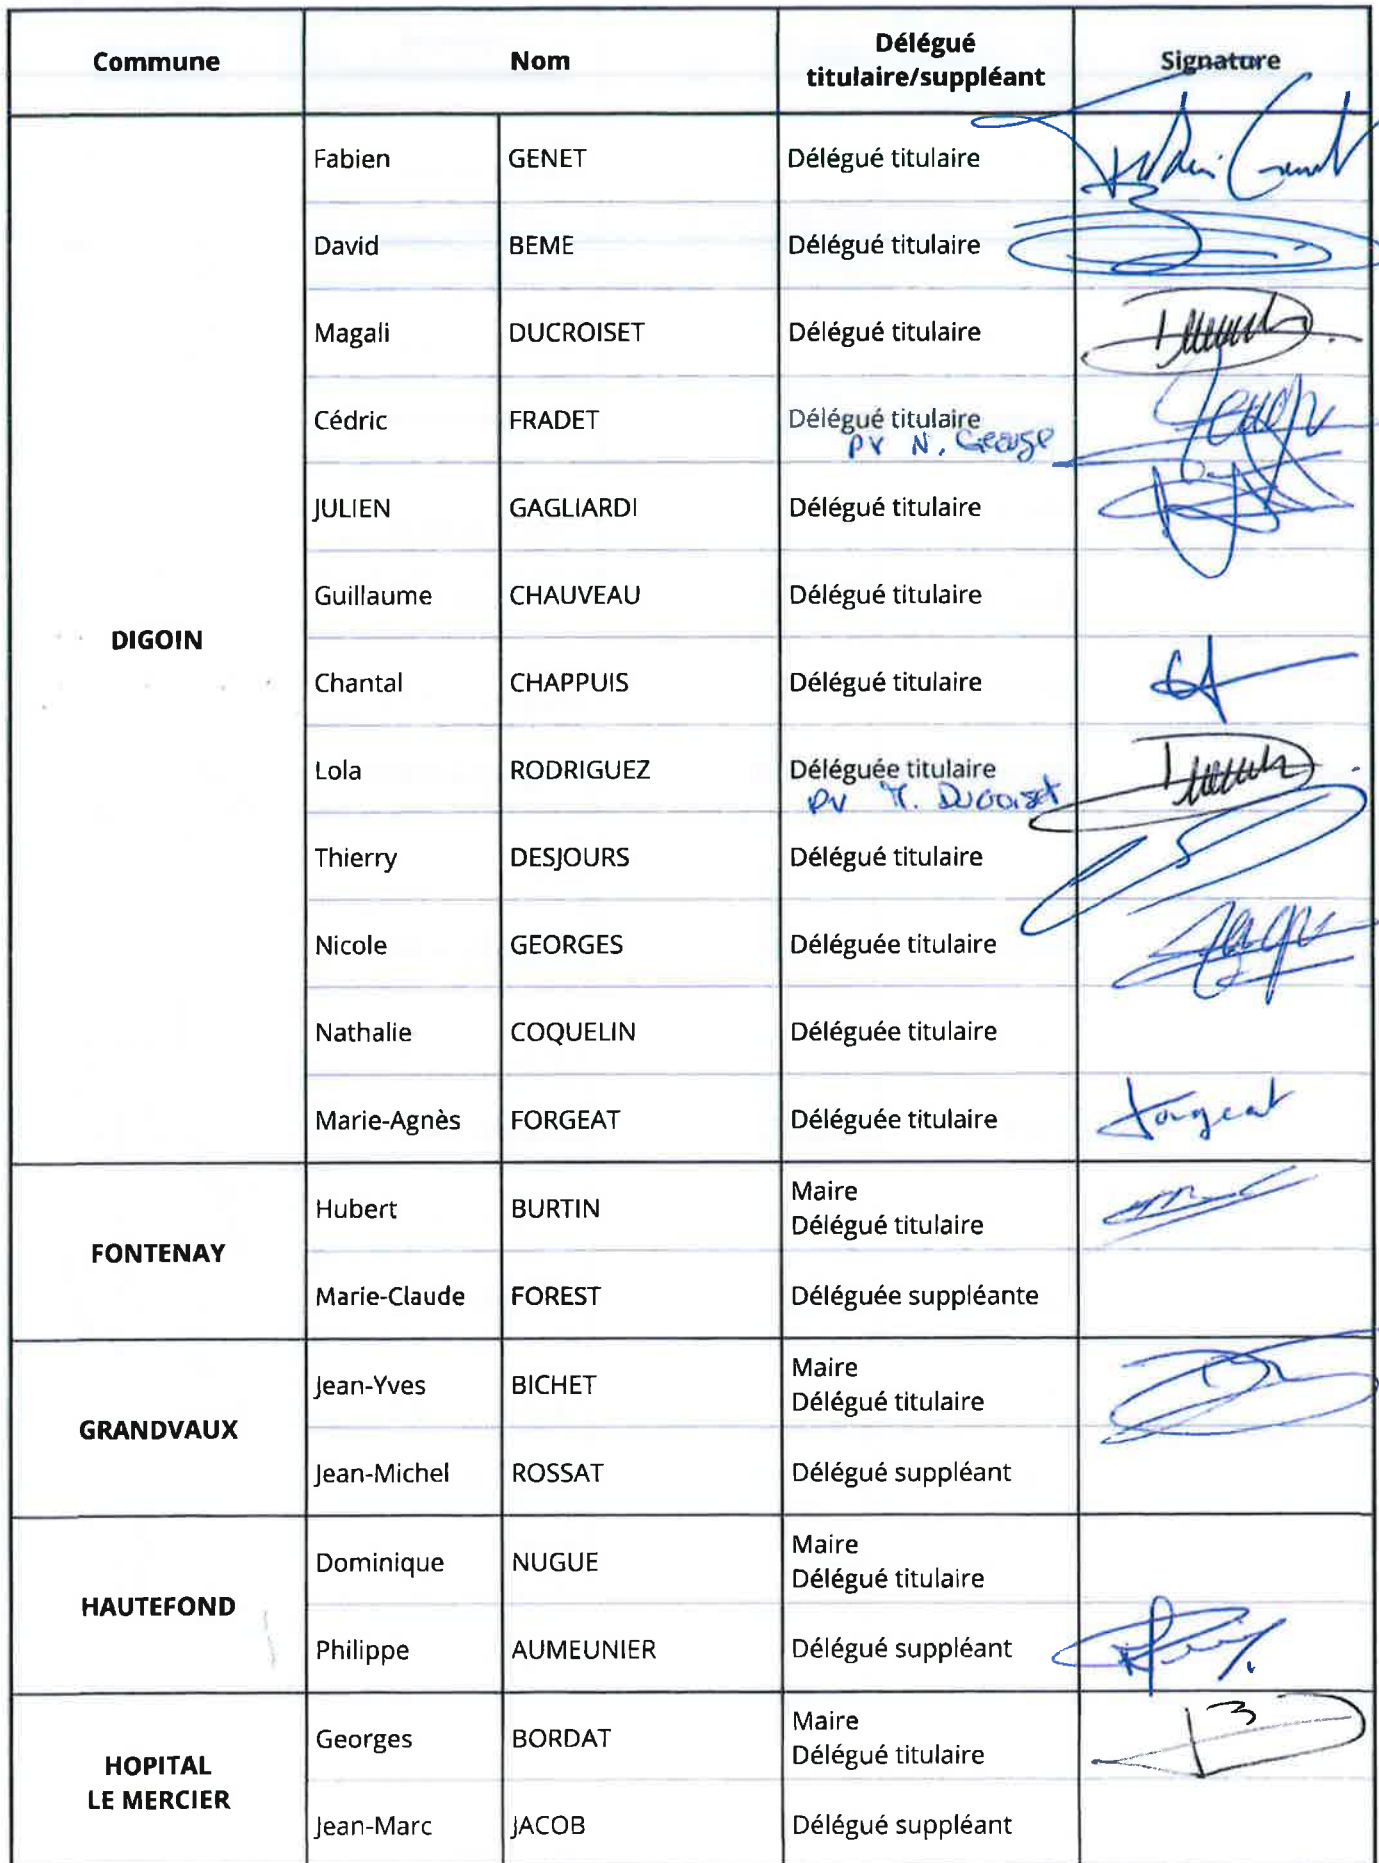 Commune Nom Délégué titulaire/suppléant Signature
DIGOIN
Fabien GENET Délégué titulaire
David BEME Délégué titulaire
Magali DUCROISET Délégué titulaire
Cédric FRADET Délégué titulaire
PV N. George
JULIEN GAGLIARDI Délégué titulaire
Guillaume CHAUVEAU Délégué titulaire
Chantal CHAPPUIS Délégué titulaire
Lola RODRIGUEZ Déléguée titulaire
PV M. Ducroiset
Thierry DESJOURS Délégué titulaire
Nicole GEORGES Déléguée titulaire
Nathalie COQUELIN Déléguée titulaire
Marie-Agnès FORGEAT Déléguée titulaire Forgeat
FONTENAY
Hubert BURTIN Maire
Délégué titulaire
Marie-Claude FOREST Déléguée suppléante
GRANDVAUX
Jean-Yves BICHET Maire
Délégué titulaire
Jean-Michel ROSSAT Délégué suppléant
HAUTEFOND
Dominique NUGUE Maire
Délégué titulaire
Philippe AUMEUNIER Délégué suppléant
HOPITAL
LE MERCIER
Georges BORDAT Maire
Délégué titulaire
Jean-Marc JACOB Délégué suppléant